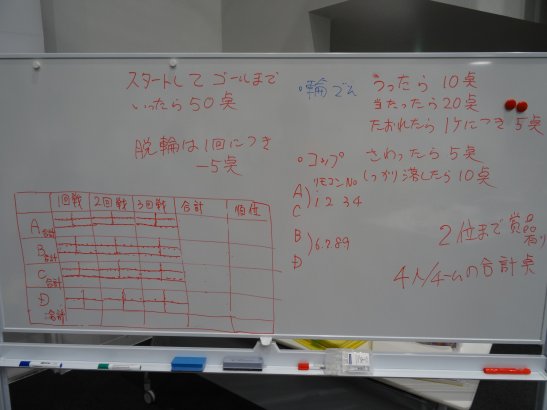 スタートして ゴールまで
いったら 50点
脱輪は1回につき
-5点
・輪ゴム
うったら 10点
当たったら 20点
たおれたら 1ケにつき 5点
・コップ
さわったら 5点
しっかり落したら 10点
リモコンNo
A) 1 2 3 4
C
B) 6.7.8.9
D
2位まで賞品有り
4人/チームの合計点
1回戦 2回戦 3回戦 合計 順位
A 合計
B 合計
C 合計
D 合計